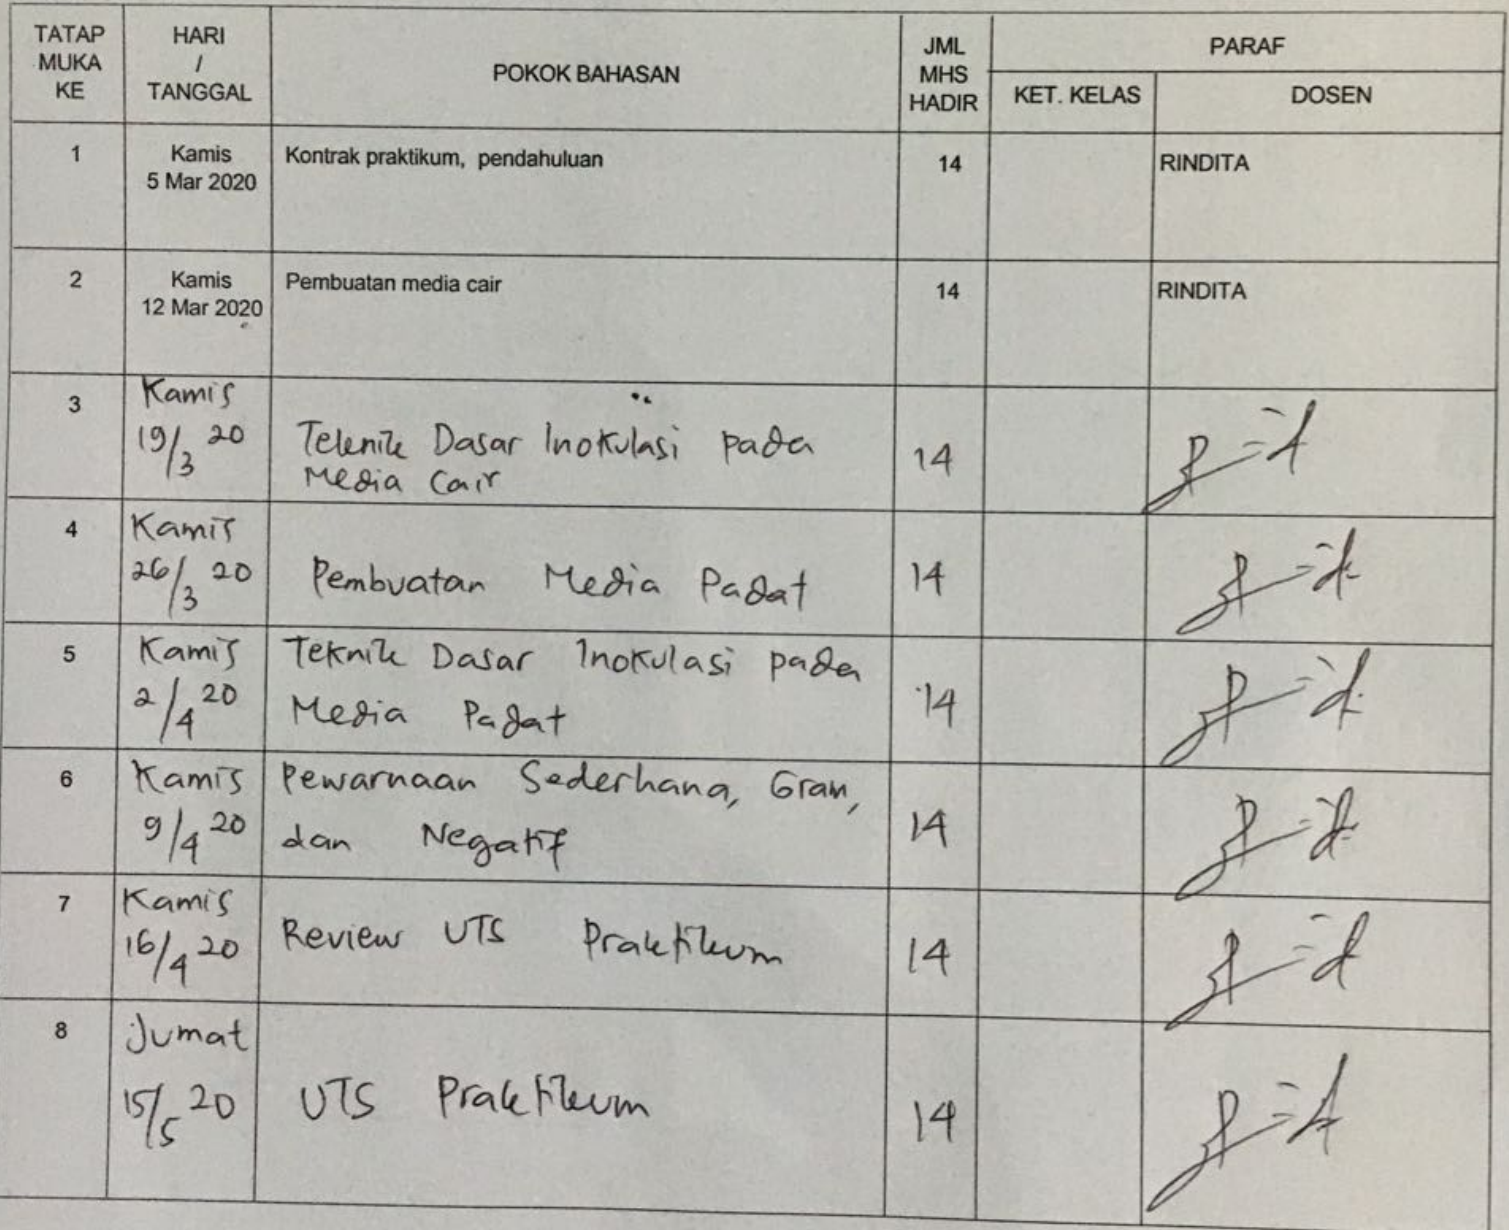 TATAP MUKA KE
HARI / TANGGAL
POKOK BAHASAN
JML MHS HADIR
PARAF
KET. KELAS
DOSEN
1
Kamis
5 Mar 2020
Kontrak praktikum, pendahuluan
14
RINDITA
2
Kamis
12 Mar 2020
Pembuatan media cair
14
RINDITA
3
Kamis
19/3 20
Teknik Dasar Inokulasi pada
Media Cair
14
4
Kamis
26/3 20
Pembuatan Media Padat
14
5
Kamis
2/4 20
Teknik Dasar Inokulasi pada
Media Padat
14
6
Kamis
9/4 20
Pewarnaan Sederhana, Gram,
dan Negatif
14
7
Kamis
16/4 20
Review UTS Praktikum
14
8
Jumat
15/5 20
UTS Praktikum
14